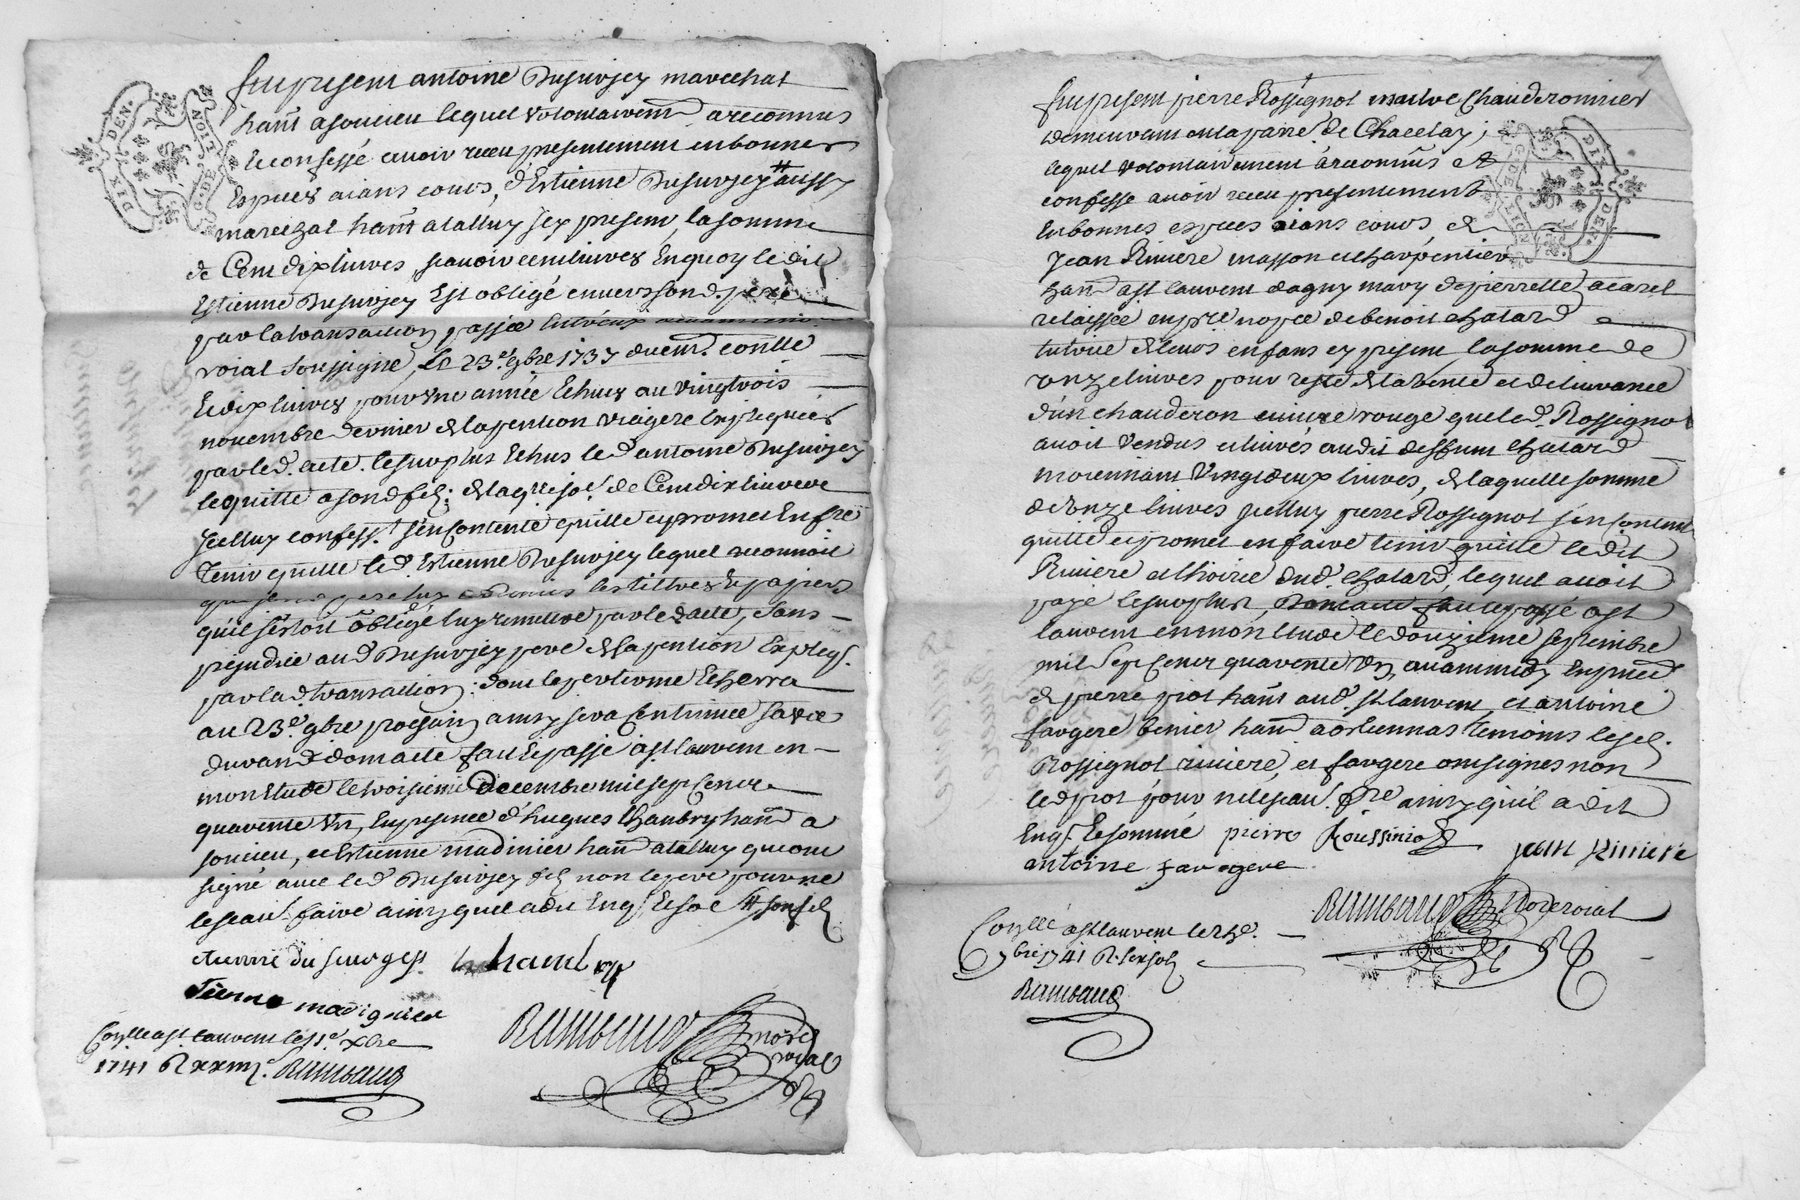 DIX DEN.
G. DE NOIT
fut present antoine Dusurjey marechal
hant a soucieu lequel volontairemt a reconnus
Et confessé avoir receu presentement en bonnes
Especes aians cours, d'Estienne Dusurjey # aussy
marechal hant a talluy jcy present, la somme
de Cent dix livres, scavoir cent livres En quoy le dit
Estienne Dusurjey Est obligé envers son d. pere
par la transaction passée
roial soussigné, Le 23e. 9bre 1737 duemt. contllé
Et dix livres pour une année Echue au vingttrois
novembre dernier de la pention viagere Expliquée
par led. acte. le surplus Echus led antoine Dusurjey
le quitte a sond fils; de laquelle so. de Cent dix livres
Jcelluy confesst. s'en Contente quitte et promet En fre
Tenir quitte led. Estienne Dusurjey lequel reconnoit
que les tiltres Et papiers
qu'il s'estoit obligé luy remettre par led acte, sans
prejudice aud Dusurjey pere de la pention Expleq.
par lad. transaction; dont le per terme Echerra
au 23e. 9bre prochain ainsy sera Continuée sa vie
durand dont acte fait Et passé a st laurent en
mon Etude le troisieme Decembre mil sept Cent
quarente un, En presence d'hugues Chambry hant a
soucieu, et Estienne madinier hant a talluy qui ont
signé avec led Dusurjey fils non le pere pour ne
le scavr. faire ainsy quil a dit Enq. Et so # son fils
etienne du surogey. h chambry
Tienne madignier
Conllé a st. Laurent le 11e. Xbre
1741 Rambaud
Rambaud nore royal
DIX DEN.
G. DE NOIT
fut present pierre Rossignol maitre Chauderonnier
demeurant en la parre. de Chacelay;
lequel volontairement a reconnus et
confesse avoir receu presentement
En bonnes especes aians cours, de
Jean Riviere masson et charpentier
hant a st laurent dagny mary de pierrette acarel
relaissée en pre nopce de benoit chatard
tutrice de leurs enfans cy present, la somme de
onze livres pour reste de la vente et delivrance
d'un chauderon cuivre rouge que led. Rossignol
avoit vendus et livrés au dit deffunt chatard
moiennant vingt deux livres, de laquelle somme
de onze livres jcelluy pierre Rossignol s'en Contente
quitte et promet en faire tenir quitte le dit
Riviere et l'hoirie dud. chatard, lequel avoit
payé le surplus, Dont acte fait Et passé a st
laurent en mon Etude le douzieme septembre
mil sept Cent quarente un, avant midy En pnce
de pierre piot hant aud. st laurent, et antoine
favgere benier hant a orliennas temoins led.
Rossignol riviere, et favgere ont signes non
led piot pour ne le scavr. fre ainsy qu'il a dit
Enq. Et sommé pierre Roussiniol jean Riviere
antoine favgere
Rambaud Nore roial
Conllé a st laurent le
7bre 1741 R. six sols
Rambaud